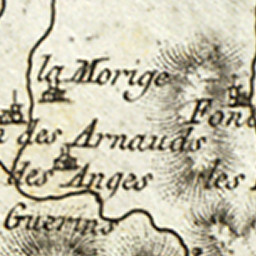 la Morige
Fon
des Arnauds
des Anges
les
Guerins